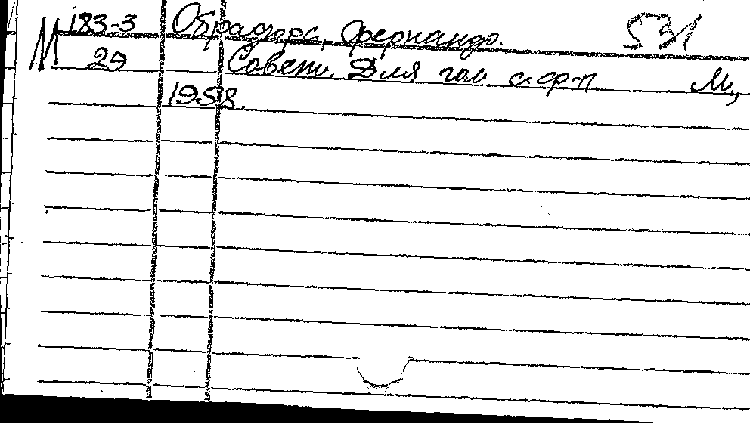 М 183-3 Обрадорс, Фернандо. 531
29 Совети. Для гол. с ф-п. М.,
1958.